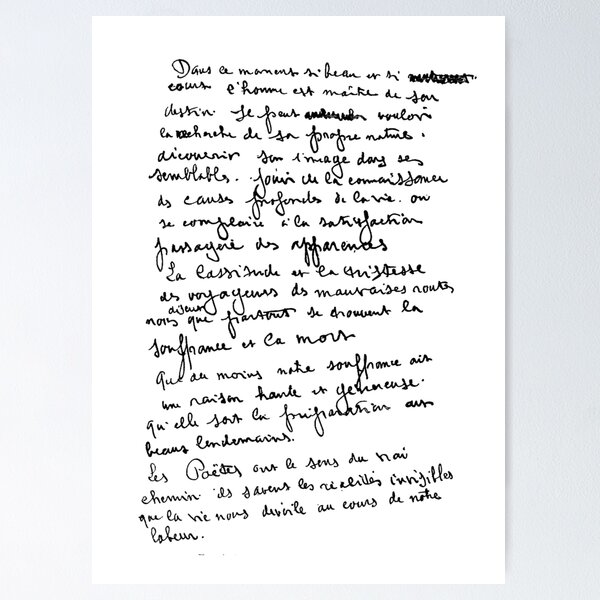 Dans ce moment si beau et si
court l'homme est maître de son
destin. Il peut vouloir
la recherche de sa propre nature.
découvrir son image dans ses
semblables. jouir de la connaissance
des causes profondes de la vie. ou
se complaire à la satisfaction
passagère des apparences
La lassitude et la tristesse
des voyageurs des mauvaises routes
disent
nous que partout se trouvent la
souffrance et la mort
Que du moins notre souffrance ait
une raison haute et généreuse.
Qu'elle soit la préparation aux
beaux lendemains.
Les Poëtes ont le sens du vrai
chemin ils savent les réalités invisibles
que la vie nous dévoile au cours de notre
labeur.